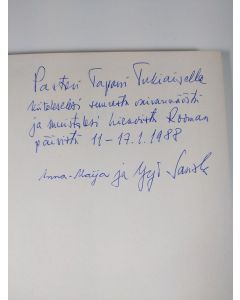 Pastori Tapani Tukiaiselle
kiitokseksi suuresta vaivannäöstä
ja muistoksi hienoista Rooman
päivistä 11–17.1.1988
Anna-Maija ja Yrjö